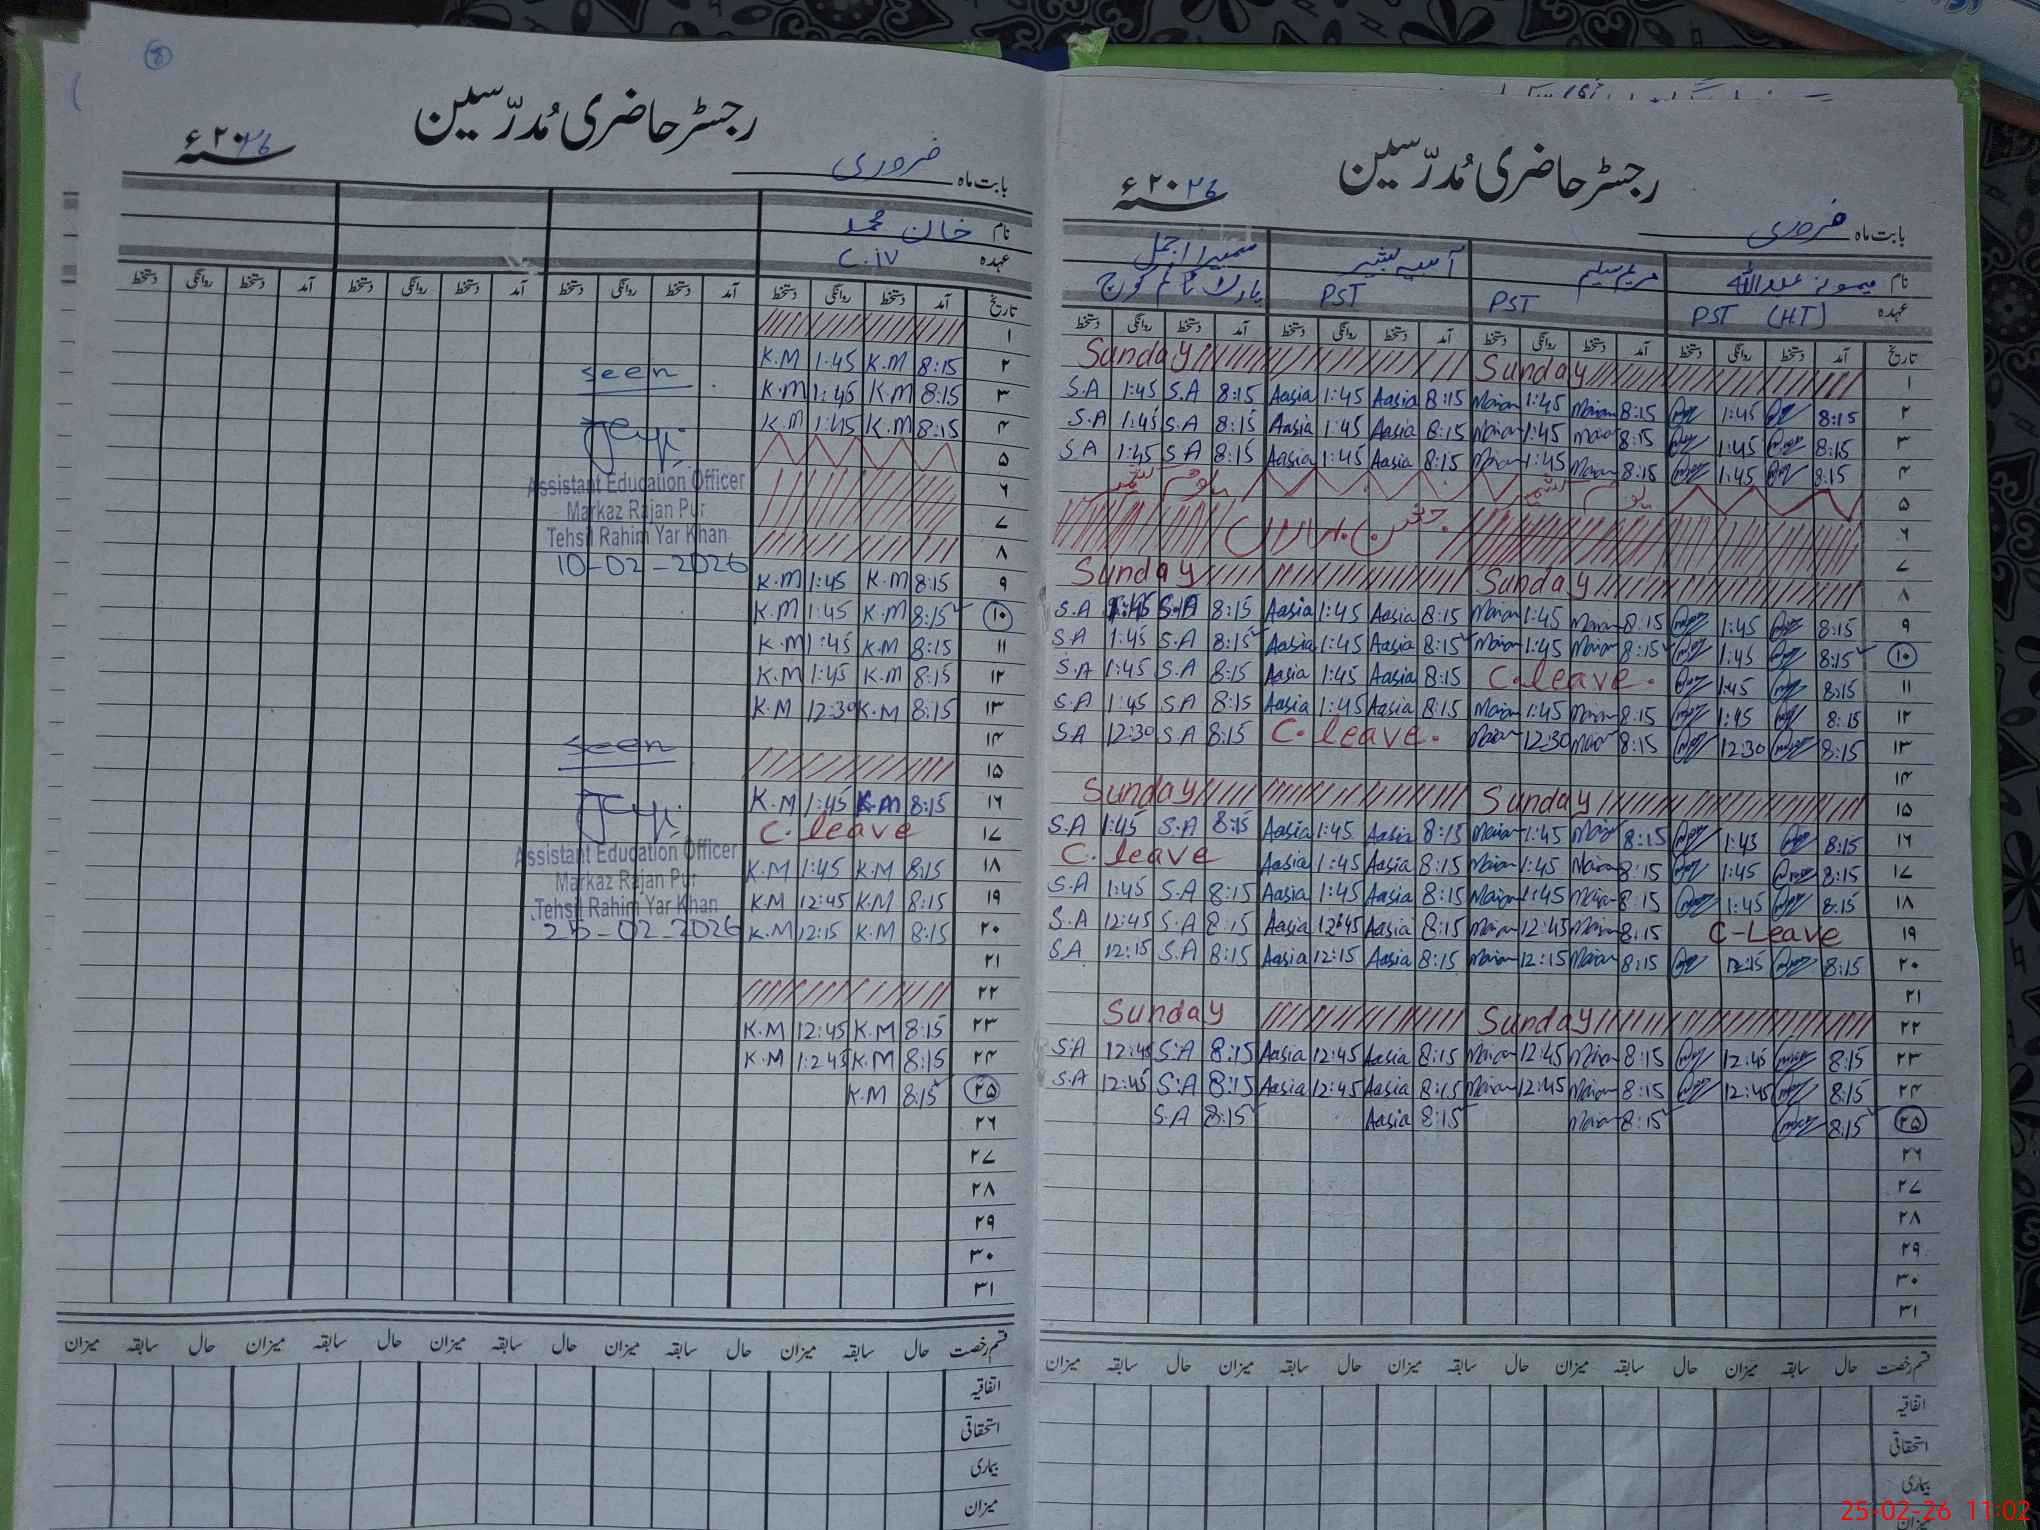 رجسٹر حاضری مُدرّسین
سنہ ۲۰۲۶ء
بابت ماہ فروری
نام میمونہ عبداللہ مریم سلیم آسیہ بشیر سمیرا اجمل
عہدہ PST (HT) PST PST پارٹ ٹائم کوچ
تاریخ آمد دستخط روانگی دستخط آمد دستخط روانگی دستخط آمد دستخط روانگی دستخط آمد دستخط روانگی دستخط
۱ Sunday Sunday
۲ 8:15 1:45 8:15 1:45 8:15 Aasia 1:45 Aasia 8:15 S.A 1:45 S.A
۳ 8:15 1:45 8:15 1:45 8:15 Aasia 1:45 Aasia 8:15 S.A 1:45 S.A
۴ 8:15 1:45 8:15 1:45 8:15 Aasia 1:45 Aasia 8:15 S.A 1:45 S.A
۵ یوم کشمیر یوم کشمیر
۶
۷
۸ Sunday Sunday
۹ 8:15 1:45 8:15 1:45 8:15 Aasia 1:45 Aasia 8:15 S.A 1:45 S.A
۱۰ 8:15 1:45 8:15 1:45 8:15 Aasia 1:45 Aasia 8:15 S.A 1:45 S.A
۱۱ 8:15 1:45 C.leave. 8:15 Aasia 1:45 Aasia 8:15 S.A 1:45 S.A
۱۲ 8:15 1:45 8:15 1:45 8:15 Aasia 1:45 Aasia 8:15 S.A 1:45 S.A
۱۳ 8:15 12:30 8:15 12:30 C. leave. 8:15 S.A 12:30 S.A
۱۴
۱۵ Sunday Sunday
۱۶ 8:15 1:45 8:15 1:45 8:15 Aasia 1:45 Aasia 8:15 S.A 1:45 S.A
۱۷ 8:15 1:45 8:15 1:45 8:15 Aasia 1:45 Aasia C. leave
۱۸ 8:15 1:45 8:15 1:45 8:15 Aasia 1:45 Aasia 8:15 S.A 1:45 S.A
۱۹ C-Leave 8:15 12:45 8:15 Aasia 12:45 Aasia 8:15 S.A 12:45 S.A
۲۰ 8:15 12:15 8:15 12:15 8:15 Aasia 12:15 Aasia 8:15 S.A 12:15 S.A
۲۱
۲۲ Sunday Sunday
۲۳ 8:15 12:45 8:15 12:45 8:15 Aasia 12:45 Aasia 8:15 S.A 12:45 S.A
۲۴ 8:15 12:45 8:15 12:45 8:15 Aasia 12:45 Aasia 8:15 S.A 12:45 S.A
۲۵ 8:15 8:15 8:15 Aasia 8:15 S.A
۲۶
۲۷
۲۸
۲۹
۳۰
۳۱
قسم رخصت حال سابقہ میزان حال سابقہ میزان حال سابقہ میزان حال سابقہ میزان حال سابقہ میزان
اتفاقیہ
استحقاقی
بیماری
میزان
رجسٹر حاضری مُدرّسین
سنہ ۲۰۲۶ء
بابت ماہ فروری
نام خان محمد
عہدہ C.iv
تاریخ آمد دستخط روانگی دستخط آمد دستخط روانگی دستخط آمد دستخط روانگی دستخط آمد دستخط روانگی دستخط
۱
۲ 8:15 K.M 1:45 K.M
۳ 8:15 K.M 1:45 K.M
۴ 8:15 K.M 1:45 K.M
۵
۶
۷
۸
۹ 8:15 K.M 1:45 K.M
۱۰ 8:15 K.M 1:45 K.M
۱۱ 8:15 K.M 1:45 K.M
۱۲ 8:15 K.M 1:45 K.M
۱۳ 8:15 K.M 12:30 K.M
۱۴
۱۵
۱۶ 8:15 K.M 1:45 K.M
۱۷ C. leave
۱۸ 8:15 K.M 1:45 K.M
۱۹ 8:15 K.M 12:45 K.M
۲۰ 8:15 K.M 12:15 K.M
۲۱
۲۲
۲۳ 8:15 K.M 12:45 K.M
۲۴ 8:15 K.M 1:245 K.M
۲۵ 8:15 K.M
۲۶
۲۷
۲۸
۲۹
۳۰
۳۱
seen
Assistant Education Officer
Markaz Rajan Pur
Tehsil Rahim Yar Khan
10-02-2026
seen
Assistant Education Officer
Markaz Rajan Pur
Tehsil Rahim Yar Khan
25-02-2026
قسم رخصت حال سابقہ میزان حال سابقہ میزان حال سابقہ میزان حال سابقہ میزان حال سابقہ میزان
اتفاقیہ
استحقاقی
بیماری
میزان
25-02-26 11:02